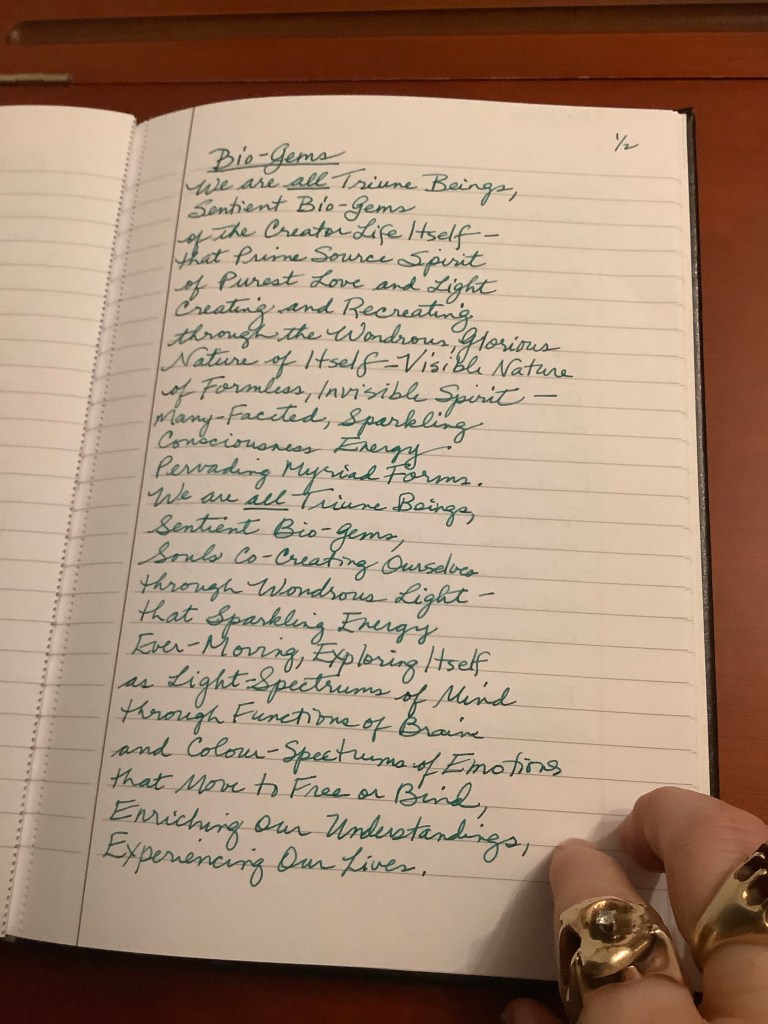 1/2
Bio-Gems
We are all Triune Beings,
Sentient Bio-Gems
of the Creator Life Itself —
that Prime Source Spirit
of Purest Love and Light
Creating and Recreating
through the Wondrous, Glorious
Nature of Itself — Visible Nature
of Formless, Invisible Spirit —
Many-Faceted, Sparkling
Consciousness Energy
Pervading Myriad Forms.
We are all Triune Beings,
Sentient Bio-gems,
Souls Co-Creating Ourselves
through Wondrous Light —
that Sparkling Energy
Ever-Moving, Exploring Itself
as Light-Spectrums of Mind
through Functions of Brain
and Colour-Spectrums of Emotions
that Move to Free or Bind,
Enriching Our Understandings,
Experiencing Our Lives.